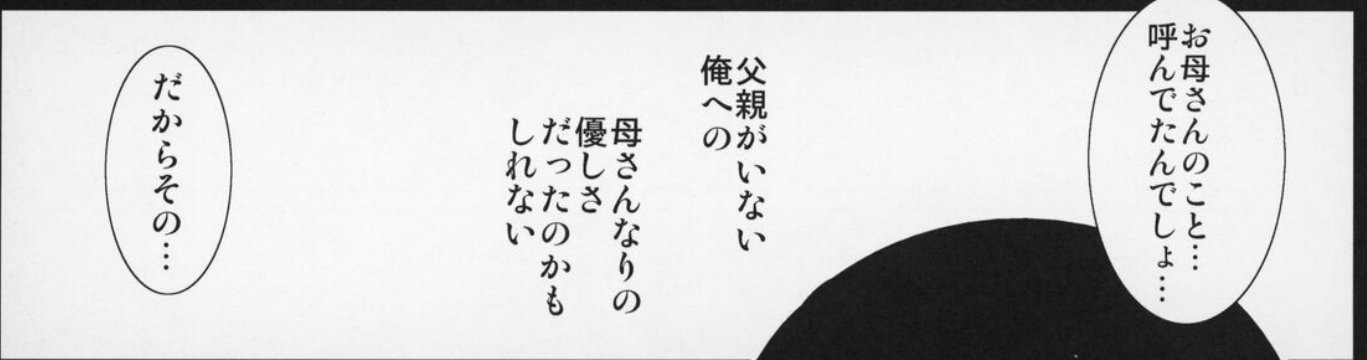 お母さんのこと…
呼んでたんでしょ…
父親がいない
俺への
母さんなりの
優しさ
だったのかも
しれない
だからその…